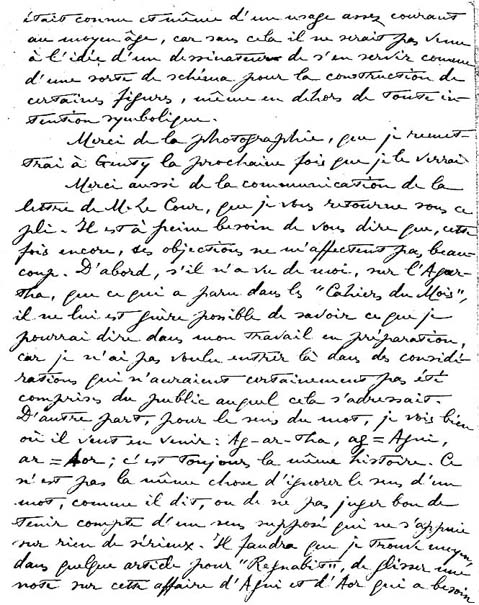 était connu et même d'un usage assez courant
au moyen âge, car sans cela il ne serait pas venu
à l'idée d'un dessinateur de s'en servir comme
d'une sorte de schéma pour la construction de
certaines figures, même en dehors de toute in-
tention symbolique.
Merci de la photographie, que je remet-
trai à Genty la prochaine fois que je le verrai
Merci aussi de la communication de la
lettre de Mr Le Cour, que je vous retourne sous ce
pli. Il est à peine besoin de vous dire que, cette
fois encore, ses objections ne m'affectent pas beau-
coup. D'abord, s'il n'a vu de moi, sur l'Agar-
tha, que ce qui a paru dans les "Cahiers du Mois",
il ne lui est guère possible de savoir ce que je
pourrai dire dans mon travail en préparation,
car je n'ai pas voulu entrer là dans des considé-
rations qui n'auraient certainement pas été
comprises du public auquel cela s'adressait.
D'autre part, pour le sens du mot, je vois bien
où il veut en venir : Ag-ar-tha, ag = Agni,
ar = Aor ; c'est toujours la même histoire. Ce
n'est pas la même chose d'ignorer le sens d'un
mot, comme il dit, ou de ne pas juger bon de
tenir compte d'un sens supposé qui ne s'appuie
sur rien de sérieux. Il faudra que je trouve moyen,
dans quelque article pour "Regnabit", de glisser une
note sur cette affaire d'Agni et d'Aor qui a besoin